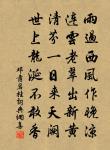 雨過西風作晚涼
連雲老翠出新黃
清芬一日來天闕
世上龍涎不敢香
鄧肅岩桂詞典網集